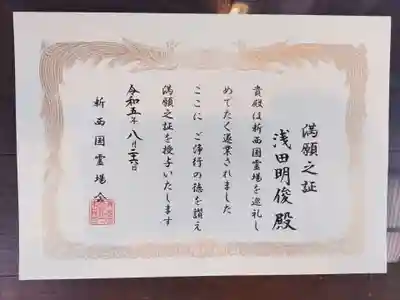 満願之証
浅田明俊殿
貴殿は新西国霊場を巡礼し
めでたく遂業されました
ここに ご浄行の徳を讃え
満願之証を授与いたします
令和五年 八月二十六日
新西国霊場会